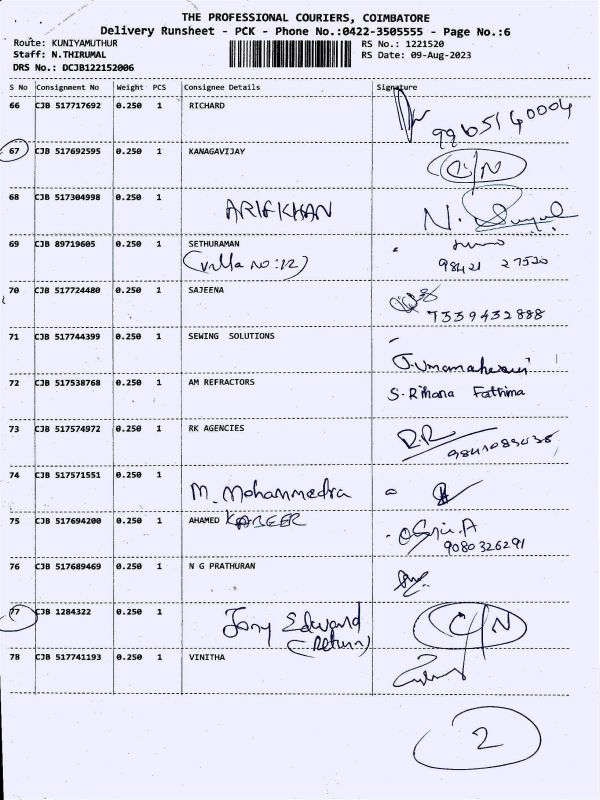 THE PROFESSIONAL COURIERS, COIMBATORE
Delivery Runsheet - PCK - Phone No.:0422-3505555 - Page No.:6
Route: KUNIYAMUTHUR RS No.: 1221520
Staff: N.THIRUMAL RS Date: 09-Aug-2023
DRS No.: DCJB122152006
S No Consignment No Weight PCS Consignee Details Signature
66 CJB 517717692 0.250 1 RICHARD
9965140004
67 CJB 517692595 0.250 1 KANAGAVIJAY C/N
68 CJB 517304998 0.250 1
ARIF KHAN N.
69 CJB 89719605 0.250 1 SETHURAMAN
(Villa No:12) 98421 27520
70 CJB 517724480 0.250 1 SAJEENA
7339432888
71 CJB 517744399 0.250 1 SEWING SOLUTIONS
J.Umamaheswari
72 CJB 517538768 0.250 1 AM REFRACTORS
S. Rihana Fathima
73 CJB 517574972 0.250 1 RK AGENCIES
R.R
74 CJB 517571551 0.250 1
M. Mohammedra
75 CJB 517694200 0.250 1 AHAMED KABEER
9080326291
76 CJB 517689469 0.250 1 N G PRATHURAN
77 CJB 1284322 0.250 1 Tony Edward C/N
(Return)
78 CJB 517741193 0.250 1 VINITHA
2